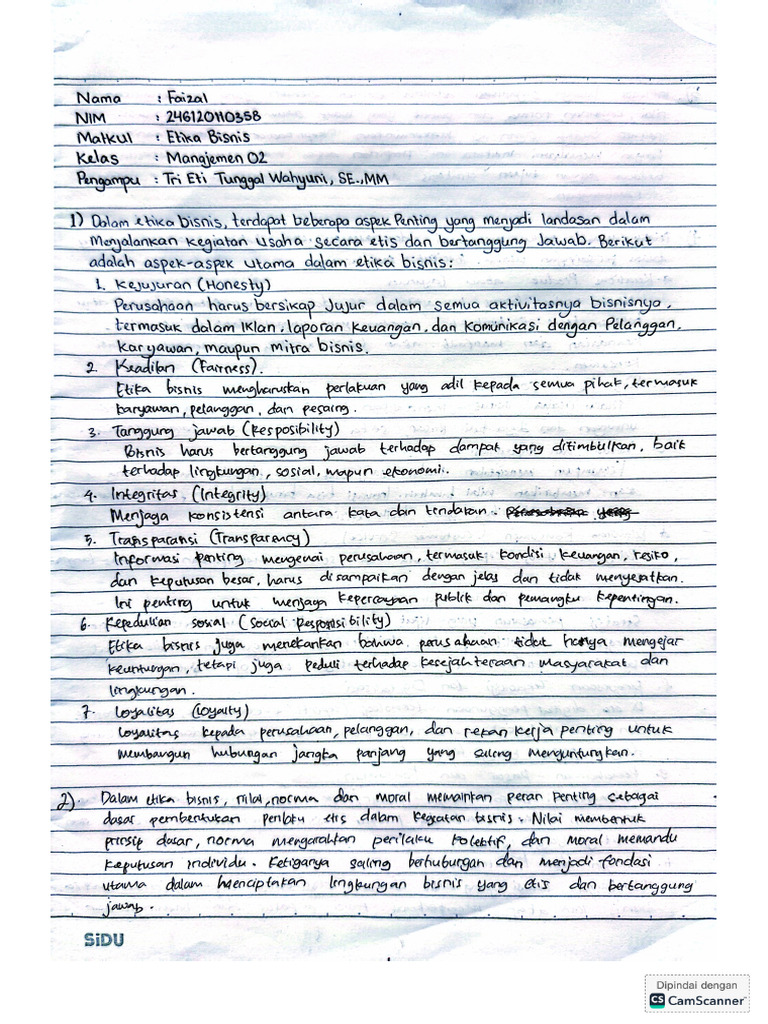 Nama : Faizal
NIM : 246120110358
Matkul : Etika Bisnis
Kelas : Manajemen 02
Pengampu : Tri Eti Tunggal Wahyuni, SE.,MM
1) Dalam etika bisnis, terdapat beberapa aspek Penting yang menjadi landasan dalam
Menjalankan kegiatan usaha secara etis dan bertanggung Jawab. Berikut
adalah aspek-aspek utama dalam etika bisnis :
1. Kejujuran (Honesty)
Perusahaan harus bersikap Jujur dalam semua aktivitasnya bisnisnya,
termasuk dalam Iklan, laporan Keuangan, dan Komunikasi dengan Pelanggan,
Karyawan, maupun mitra bisnis.
2. Keadilan (Fairness).
Etika bisnis mengharuskan perlakuan yang adil kepada semua pihak, termasuk
karyawan, pelanggan, dan pesaing.
3. Tanggung jawab (Resposibility)
Bisnis harus bertanggung jawab terhadap dampak yang ditimbulkan, baik
terhadap lingkungan, sosial, mapun ekonomi.
4. Integritas (Integrity)
Menjaga konsistensi antara kata dan tindakan.
5. Transparansi (Transparency)
Informasi penting mengenai perusahaan, termasuk kondisi keuangan, resiko,
dan keputusan besar, harus disampaikan dengan jelas dan tidak menyesatkan.
Ini penting untuk menjaga kepercayaan publik dan pemangku kepentingan.
6. Kepedulian sosial (Social Responsibility)
Etika bisnis juga menekankan bahwa perusahaan tidak hanya mengejar
keuntungan, tetapi juga peduli terhadap kesejahteraan masyarakat dan
lingkungan.
7. Loyalitas (Loyalty)
Loyalitas kepada perusahaan, pelanggan, dan rekan kerja penting untuk
membangun hubungan jangka panjang yang saling menguntungkan.
2). Dalam etika bisnis, nilai, norma dan moral memainkan peran penting sebagai
dasar pembentukan perilaku etis dalam kegiatan bisnis. Nilai membentuk
prinsip dasar, norma mengarahkan perilaku kolektif, dan moral memandu
keputusan individu. Ketiganya saling berhubungan dan menjadi fondasi
utama dalam menciptakan lingkungan bisnis yang etis dan bertanggung
jawab.
SiDU
Dipindai dengan
CS CamScanner